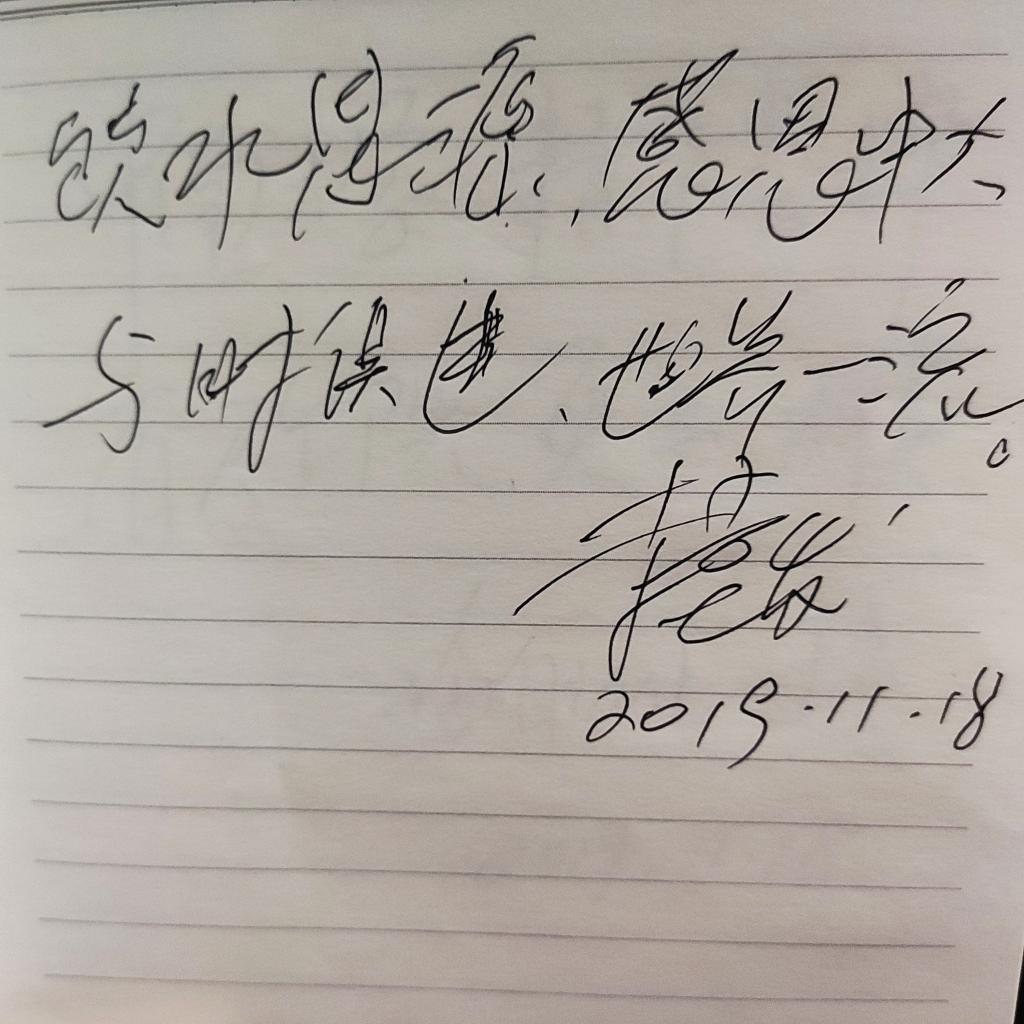 饮水思源、感恩中大
与时俱进、世界一流。
2019.11.18